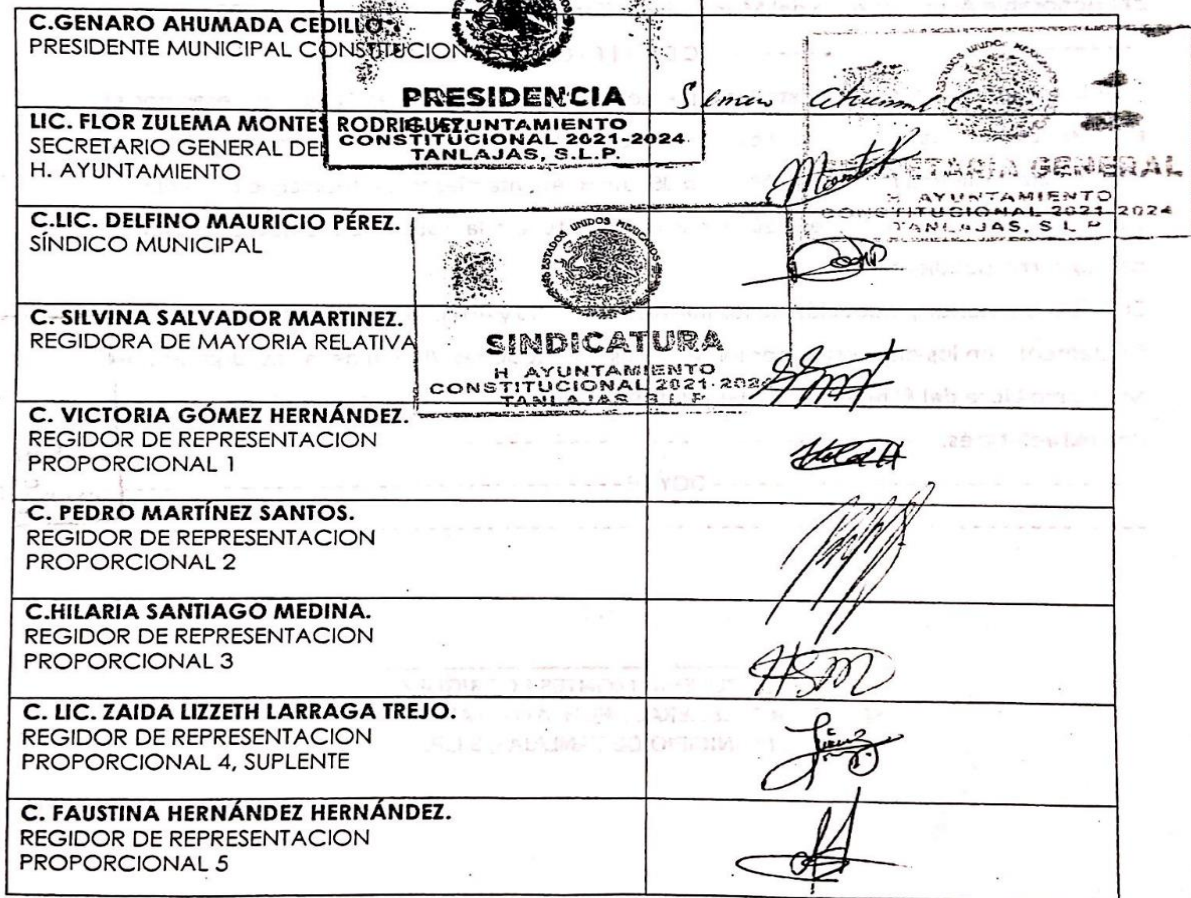 C.GENARO AHUMADA CEDILLO.
PRESIDENTE MUNICIPAL CONSTITUCION
PRESIDENCIA
H. AYUNTAMIENTO
CONSTITUCIONAL 2021-2024
TANLAJAS, S.L.P.
LIC. FLOR ZULEMA MONTES RODRIGUEZ.
SECRETARIO GENERAL DEL
H. AYUNTAMIENTO
SECRETARIA GENERAL
H. AYUNTAMIENTO
CONSTITUCIONAL 2021-2024
TANLAJAS, S.L.P.
C.LIC. DELFINO MAURICIO PÉREZ.
SÍNDICO MUNICIPAL
ESTADOS UNIDOS MEXICANOS
SINDICATURA
H. AYUNTAMIENTO
CONSTITUCIONAL 2021-2024
TANLAJAS S.L.P.
C. SILVINA SALVADOR MARTINEZ.
REGIDORA DE MAYORIA RELATIVA
C. VICTORIA GÓMEZ HERNÁNDEZ.
REGIDOR DE REPRESENTACION
PROPORCIONAL 1
C. PEDRO MARTÍNEZ SANTOS.
REGIDOR DE REPRESENTACION
PROPORCIONAL 2
C.HILARIA SANTIAGO MEDINA.
REGIDOR DE REPRESENTACION
PROPORCIONAL 3
HSM
C. LIC. ZAIDA LIZZETH LARRAGA TREJO.
REGIDOR DE REPRESENTACION
PROPORCIONAL 4, SUPLENTE
C. FAUSTINA HERNÁNDEZ HERNÁNDEZ.
REGIDOR DE REPRESENTACION
PROPORCIONAL 5